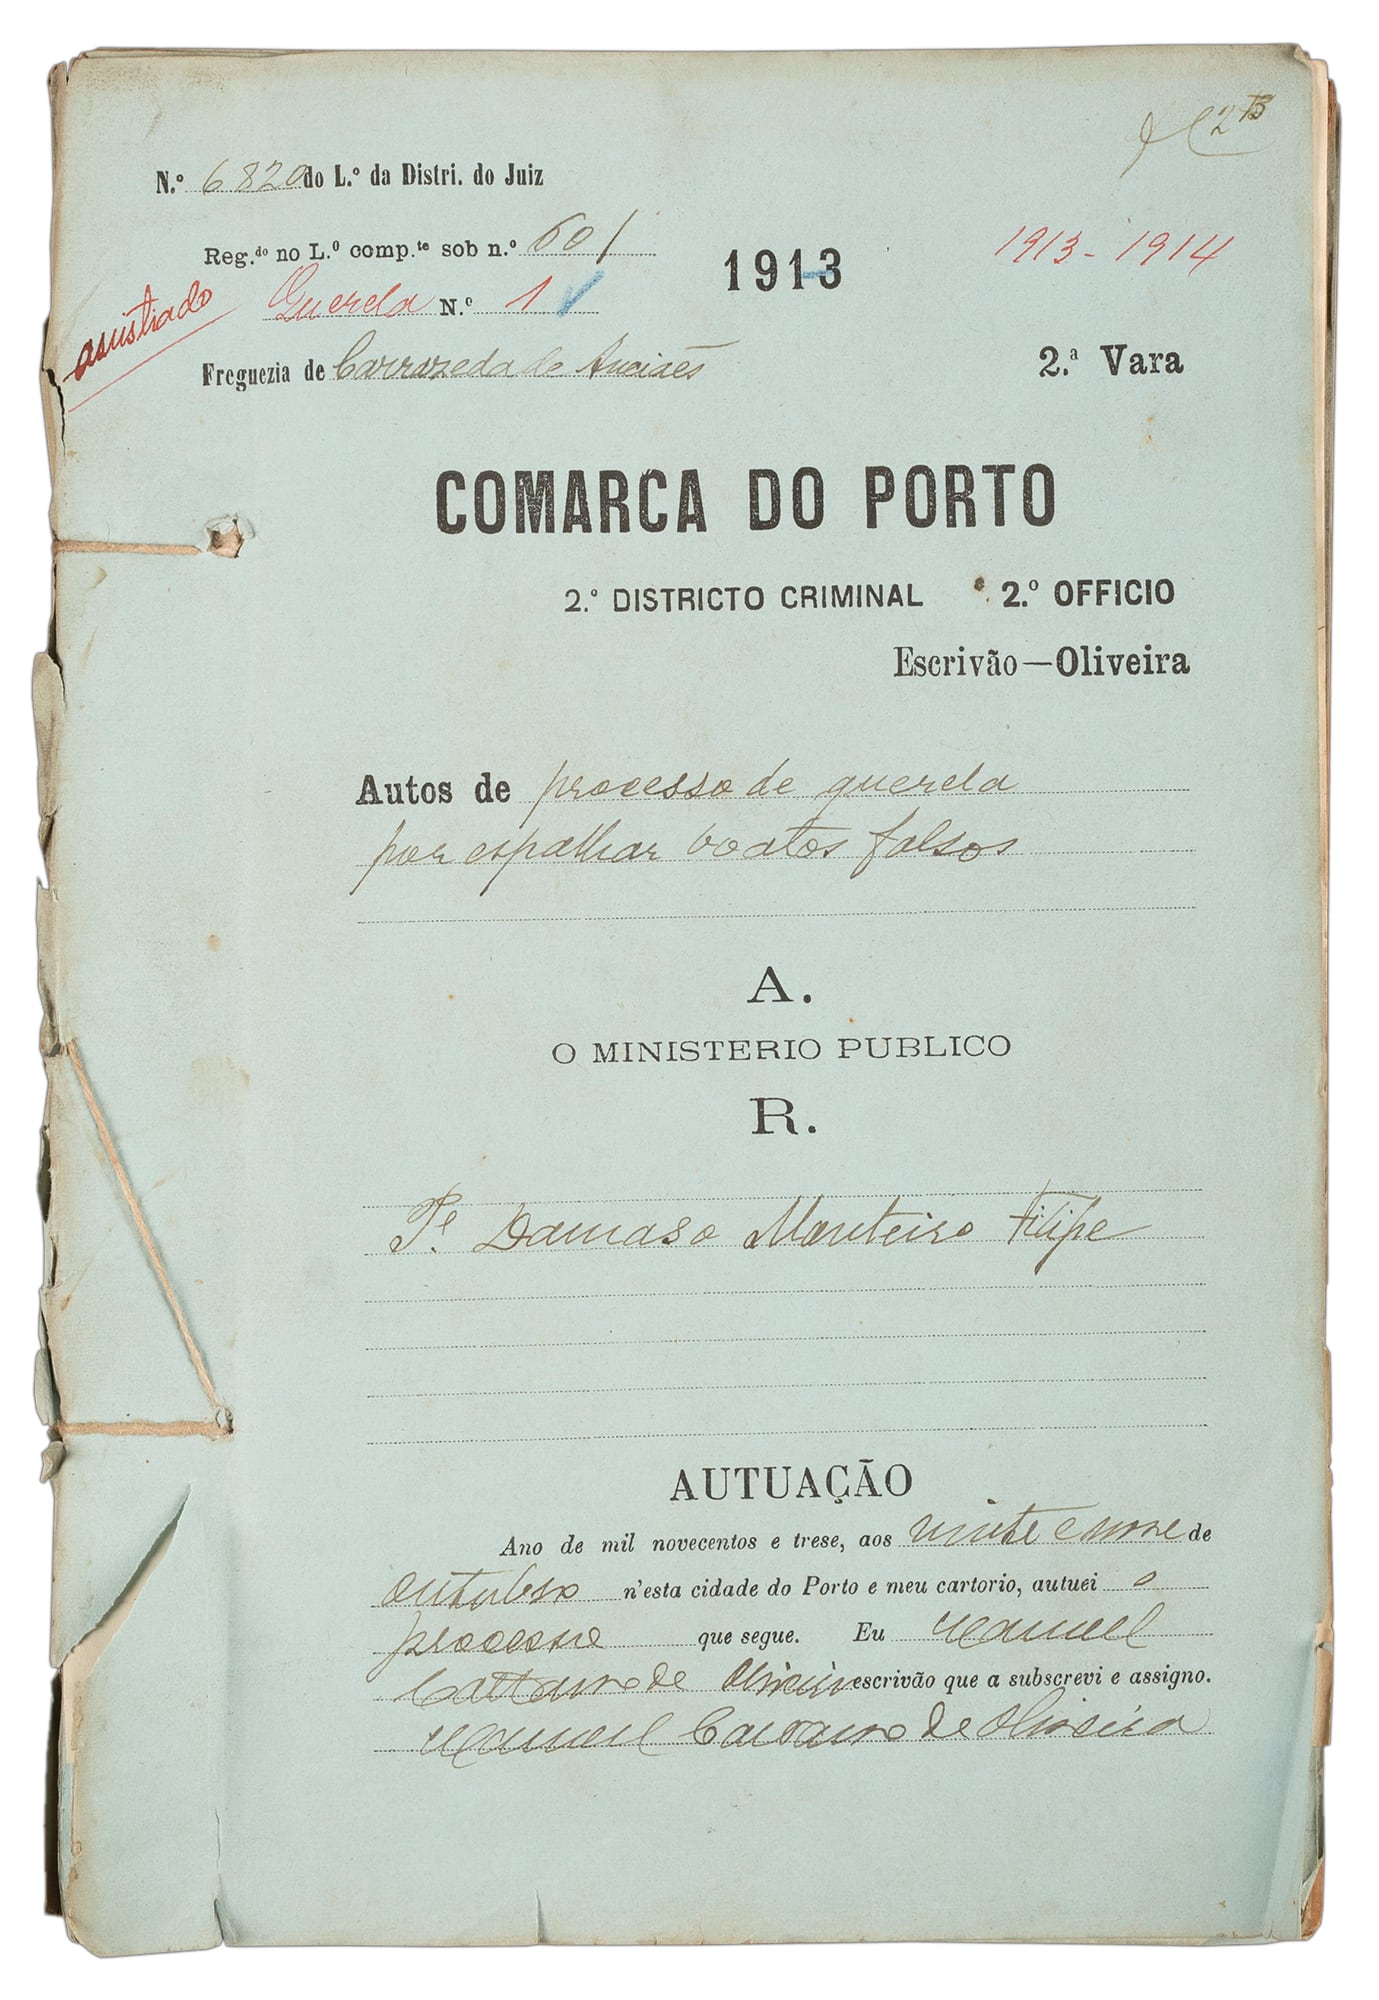 2 B
N.º 6820 do L.º da Distri. do Juiz
Reg.do no L.º comp.te sob n.º 601
1913
1913-1914
amnistiado
Querela N.º 1
Freguezia de Carrazeda de Anciães
2.ª Vara
COMARCA DO PORTO
2.º DISTRICTO CRIMINAL 2.º OFFICIO
Escrivão—Oliveira
Autos de processo de querela
por espalhar boatos falsos
A.
O MINISTERIO PUBLICO
R.
P.e Damaso Monteiro Filipe
AUTUAÇÃO
Ano de mil novecentos e trese, aos vinte e nove de
outubro n'esta cidade do Porto e meu cartorio, autuei o
processo que segue. Eu Manuel
de Oliveira escrivão que a subscrevi e assigno.
Manuel de Oliveira